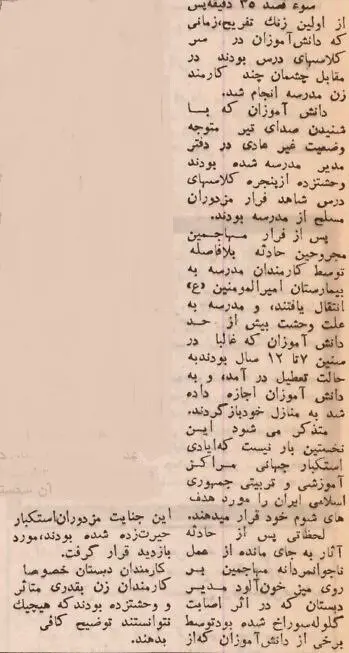 سوء قصد ۳۵ دقیقه‌پس
از اولین زنگ تفریح،زمانی
که دانش‌آموزان در سر
کلاسهای درس بودند در
مقابل چشمان چند کارمند
زن مدرسه انجام شد.
دانش آموزان که بـــا
شنیدن صدای تیر متوجه
وضعیت غیر عادی در دفتر
مدیر مدرسه شده بودند
وحشتزده ازپنجره کلاسهای
درس شاهد فرار مزدوران
مسلح از مدرسه بودند.
پس از فرار مهـاجمین
مجروحین حادثه بلافاصله
توسط کارمندان مدرسه به
بیمارستان امیرالمومنین (ع)
انتقال یافتند، و مدرسه به
علت وحشت بیش از حـــد
دانش آموزان که غالبا در
سنین ۷ تا ۱۲ سال بودندبه
حالت تعطیل در آمد، و به
دانش آموزان اجازه داده
شد به منازل خودبازگردند.
متذکر می شود ایـــن
نخستین بار نیست که‌ایادی
استکبار جهانی مــراکــز
آموزشی و تربیتی جمهوری
اسلامی ایران را مورد هدف
های شوم خود قرار میدهند.
لحظاتی پس از حادثه
آثار به جای مانده از عمل
ناجوانمردانه مهاجمین بــر
روی میز خون‌آلود مدیــر
دبستان که در اثر اصابت
گلوله‌سوراخ شده بودتوسط
برخی از دانش‌آموزان که‌از
این جنایت مزدوران‌استکبار
حیرت‌زده شده بودند،مورد
بازدید قرار گرفت.
کارمندان دبستان خصوصا
کارمندان زن بقدری متاثر
و وحشتزده بودندکه هیچیک
نتوانستند توضیح کافی
بدهند.